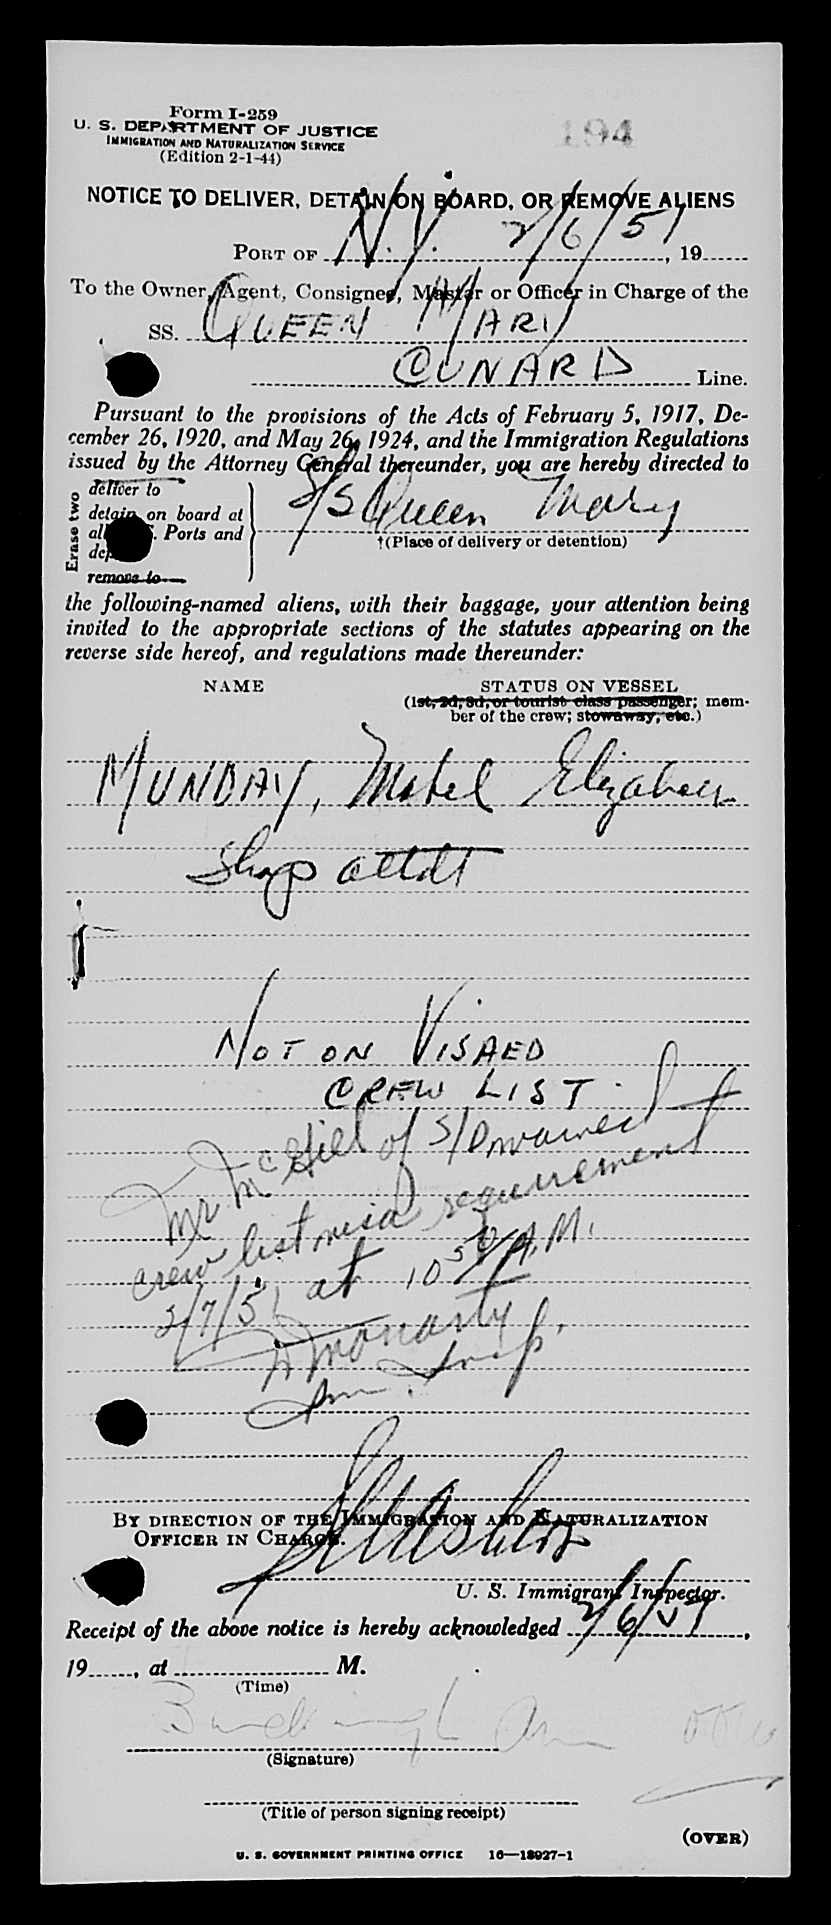 Form I-259
U. S. DEPARTMENT OF JUSTICE
IMMIGRATION AND NATURALIZATION SERVICE
(Edition 2-1-44)
194
NOTICE TO DELIVER, DETAIN ON BOARD, OR REMOVE ALIENS
PORT OF N.Y. 2/6/51, 19
To the Owner, Agent, Consignee, Master or Officer in Charge of the
SS. QUEEN MARY
CUNARD Line.
Pursuant to the provisions of the Acts of February 5, 1917, De-
cember 26, 1920, and May 26, 1924, and the Immigration Regulations
issued by the Attorney General thereunder, you are hereby directed to
Erase two
deliver to
detain on board at
S/S Queen Mary
Ports and
†(Place of delivery or detention)
remove to
the following-named aliens, with their baggage, your attention being
invited to the appropriate sections of the statutes appearing on the
reverse side hereof, and regulations made thereunder:
NAME STATUS ON VESSEL
(1st, 2d, 3d, or tourist class passenger; mem-
ber of the crew; stowaway, etc.)
MUNDAY, Mabel Elizabeth
Shop attdt
NOT ON VISAED
CREW LIST.
Mr McGill of S/D warned
crew list visa requirement
2/7/51 at 10 50 A.M.
Moriarty
Imm. Insp.
BY DIRECTION OF THE IMMIGRATION AND NATURALIZATION
OFFICER IN CHARGE.
U. S. Immigrant Inspector.
Receipt of the above notice is hereby acknowledged 2/6/51,
19, at M.
(Time)
(Signature)
(Title of person signing receipt)
(OVER)
U. S. GOVERNMENT PRINTING OFFICE 16—18927-1